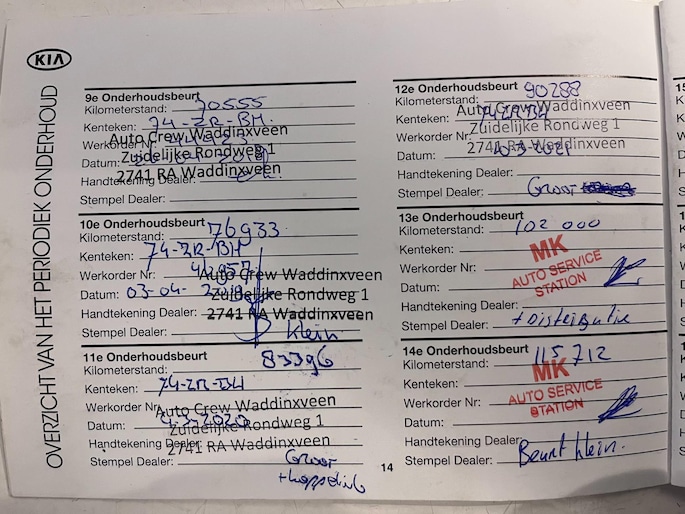 KIA
OVERZICHT VAN HET PERIODIEK ONDERHOUD
9e Onderhoudsbeurt
Kilometerstand: 70555
Kenteken: 74-ZR-BH.
Auto Crew Waddinxveen
Werkorder Nr:
Zuidelijke Rondweg 1
Datum:
2741 RA Waddinxveen
Handtekening Dealer:
Stempel Dealer:
10e Onderhoudsbeurt
Kilometerstand: 76933
Kenteken: 74-ZR-BH
Werkorder Nr:
Auto Crew Waddinxveen
Datum: 03-04-
Zuidelijke Rondweg 1
Handtekening Dealer:
2741 RA Waddinxveen
Stempel Dealer: Klein
11e Onderhoudsbeurt
Kilometerstand: 83396
Kenteken: 74-ZR-BH
Werkorder Nr:
Auto Crew Waddinxveen
Datum:
Zuidelijke Rondweg 1
Handtekening Dealer:
2741 RA Waddinxveen
Stempel Dealer: Groot
14
12e Onderhoudsbeurt
Kilometerstand: 90288
Auto Crew Waddinxveen
Kenteken: 74ZRBH
Zuidelijke Rondweg 1
Werkorder Nr:
2741 RA Waddinxveen
Datum:
Handtekening Dealer:
Stempel Dealer: Groot
13e Onderhoudsbeurt
Kilometerstand: 102 000
Kenteken:
MK
Werkorder Nr:
AUTO SERVICE
Datum:
STATION
Handtekening Dealer:
Stempel Dealer: + Distributie
14e Onderhoudsbeurt
Kilometerstand: 115 712
Kenteken:
MK
Werkorder Nr:
AUTO SERVICE
Datum:
STATION
Handtekening Dealer:
Stempel Dealer: Beurt klein.